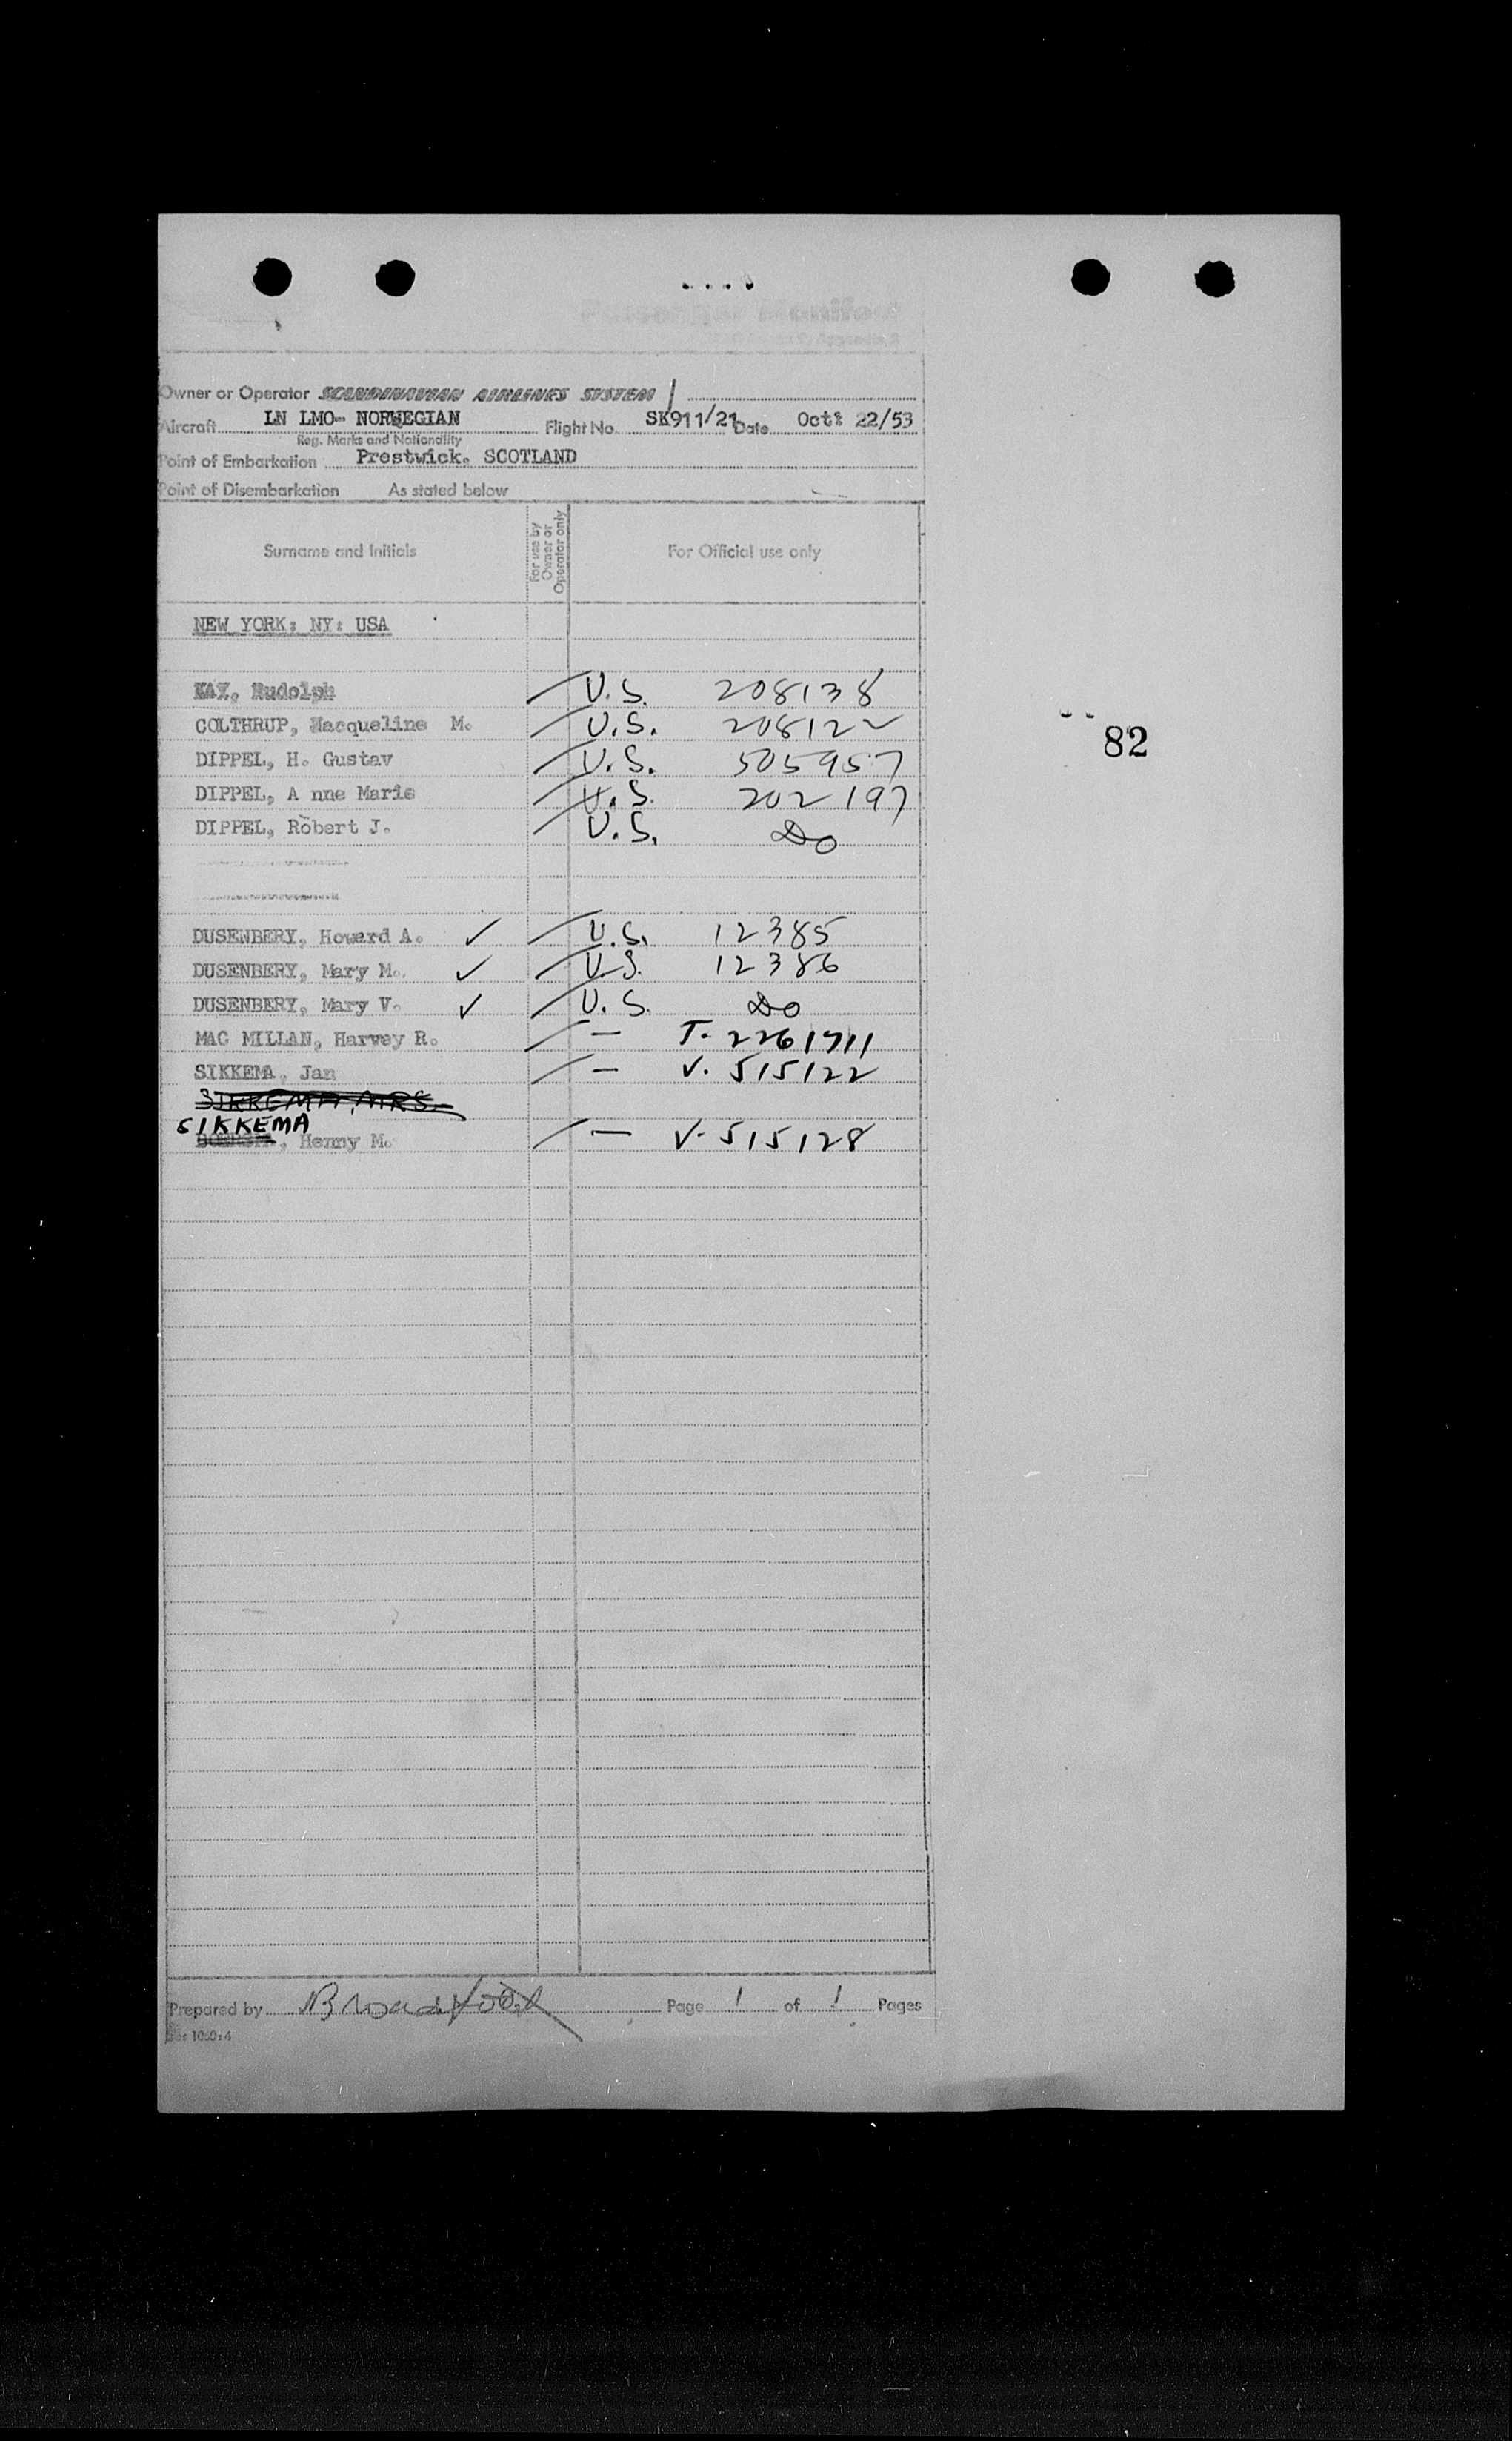 Owner or Operator SCANDINAVIAN AIRLINES SYSTEM /
Aircraft LN LMO- NORWEGIAN Flight No. SK911/21 Date Oct: 22/53
Reg. Marks and Nationality
Point of Embarkation Prestwick, SCOTLAND
Point of Disembarkation As stated below
Surname and Initials For use by Owner or Operator only For Official use only
NEW YORK: NY: USA
KAY, Rudolph U.S. 208138
COLTHRUP, Macqueline M. U.S. 208122
82
DIPPEL, H. Gustav U.S. 505957
DIPPEL, A nne Marie U.S. 202197
DIPPEL, Robert J. U.S. Do
DUSENBERY, Howard A. ✓ U.S. 12385
DUSENBERY, Mary M. ✓ U.S. 12386
DUSENBERY, Mary V. ✓ U.S. Do
MAC MILLAN, Harvey R. — T. 2261711
SIKKEMA, Jan — V. 515122
SIKKEMA, MRS.
SIKKEMA
, Henny M. — V. 515128
Prepared by Page 1 of 1 Pages